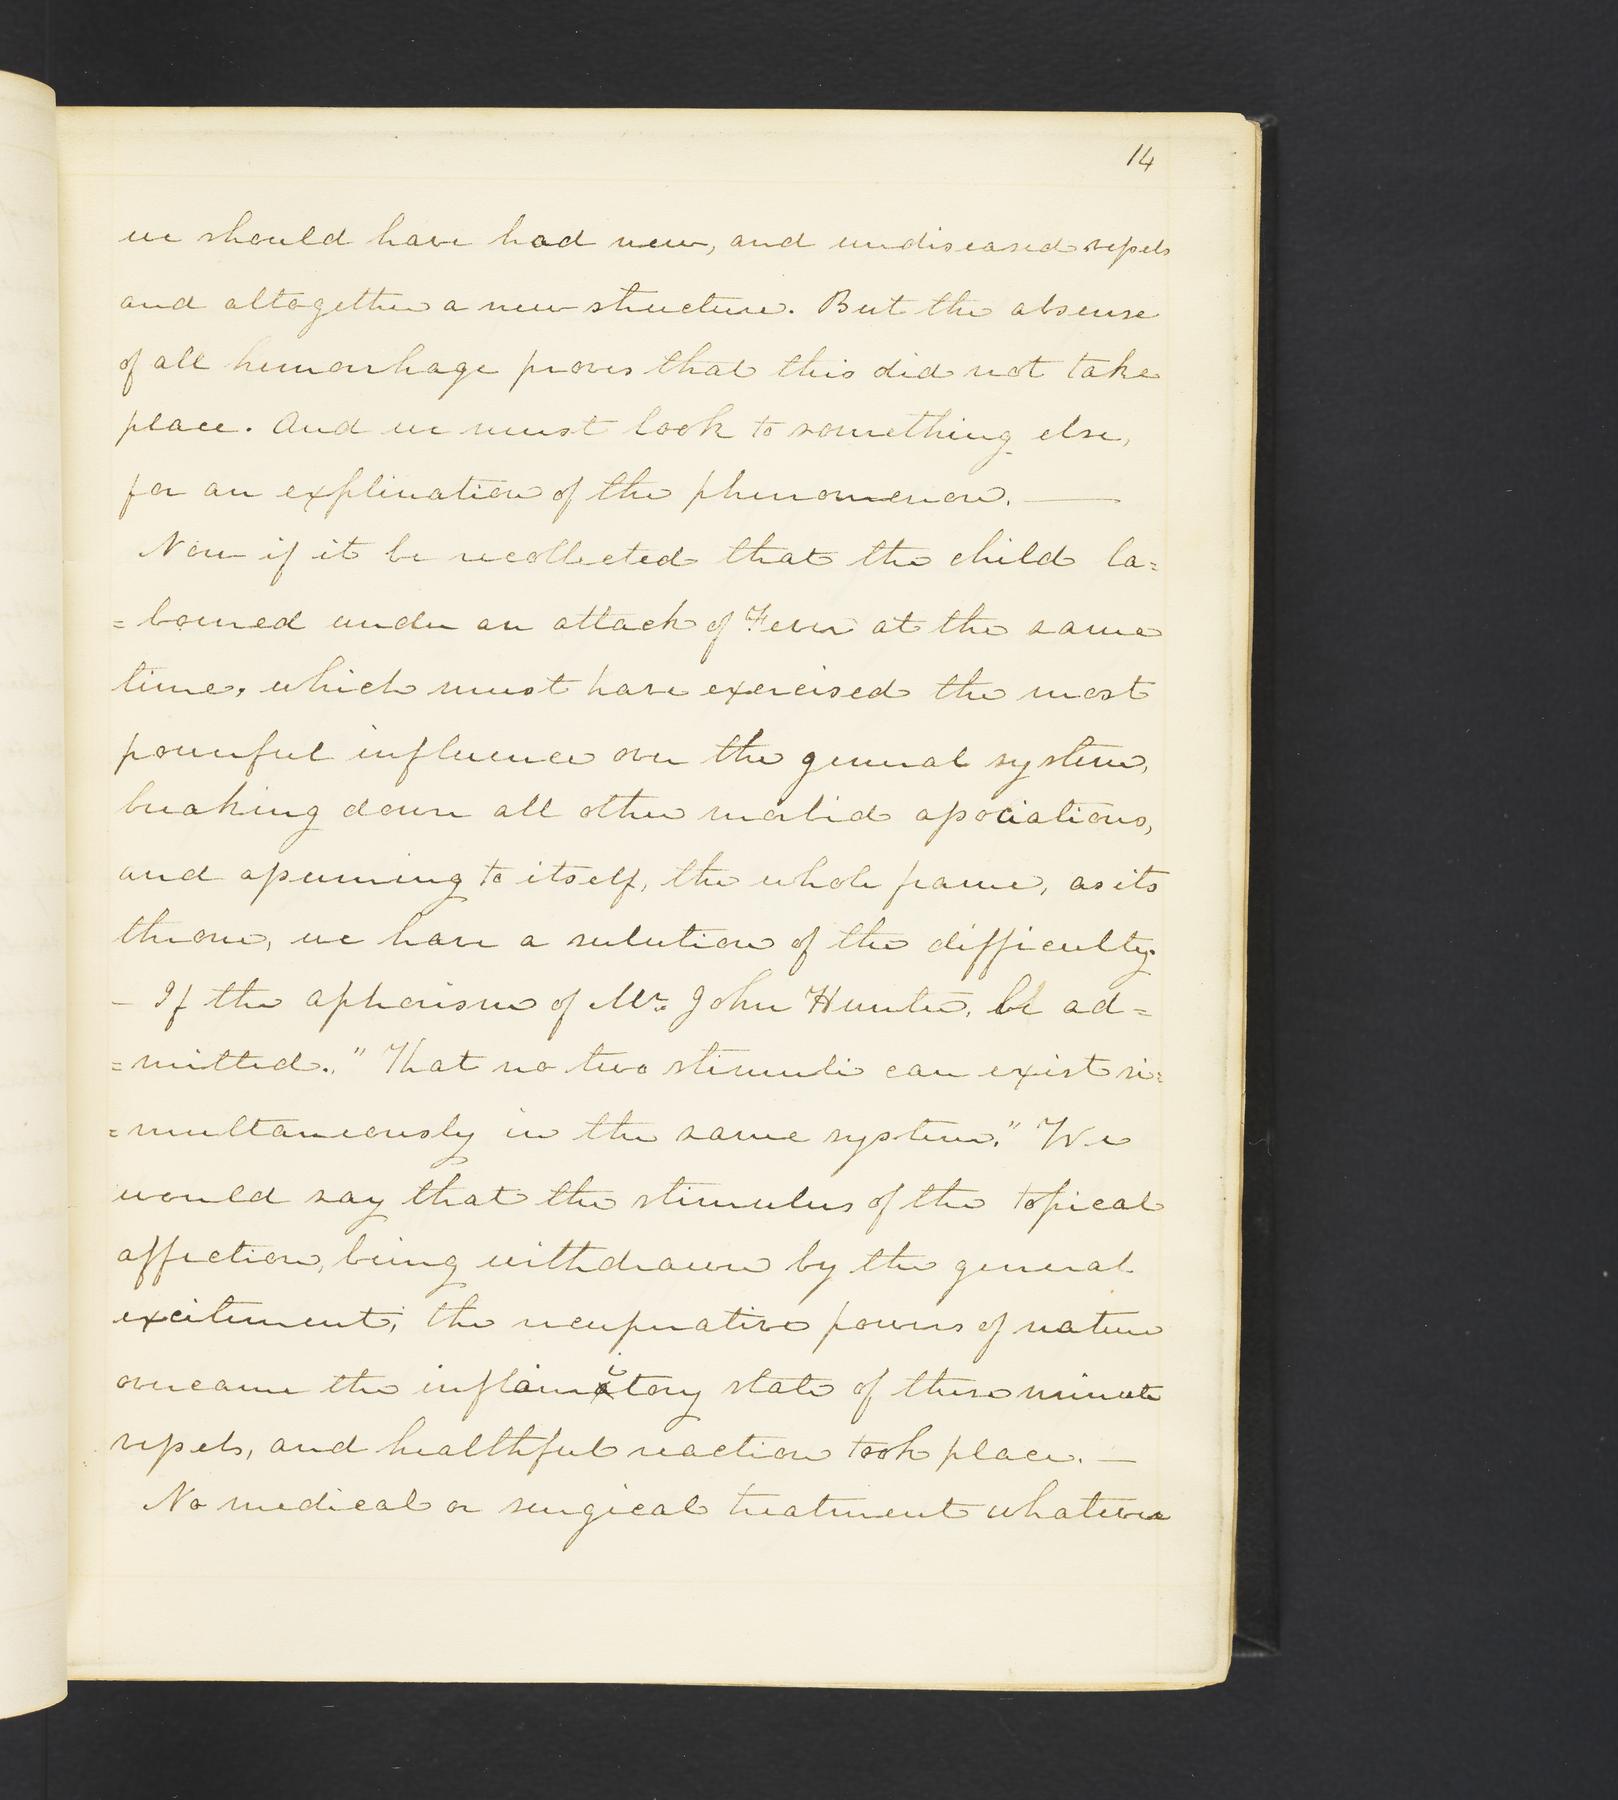 14
we should have had new, and undiseased vessels
and altogether a new structure. But the absense
of all hemorrhage proves that this did not take
place. And we must look to something else,
for an explination of the phenomenon. —
Now if it be recollected that the child la=
=boured under an attack of Fever at the same
time, which must have exercised the most
powerful influence over the general system,
breaking down all other morbid associations,
and assuming to itself, the whole frame, as its
throne, we have a solution of the difficulty.
— If the aphorism of Mr. John Hunter, be ad=
=mitted. "That no two stimuli can exist si=
=multaneously in the same system." We
would say that the stimulus of the topical
affection, being withdrawn by the general
excitement; the recuperative powers of nature
overcame the inflamitory state of these minute
vessels, and healthful reaction took place. —
No medical or surgical treatment whatever